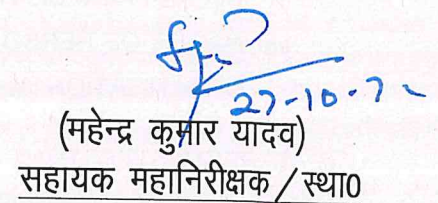 27-10-
(महेन्द्र कुमार यादव)
सहायक महानिरीक्षक/स्था0